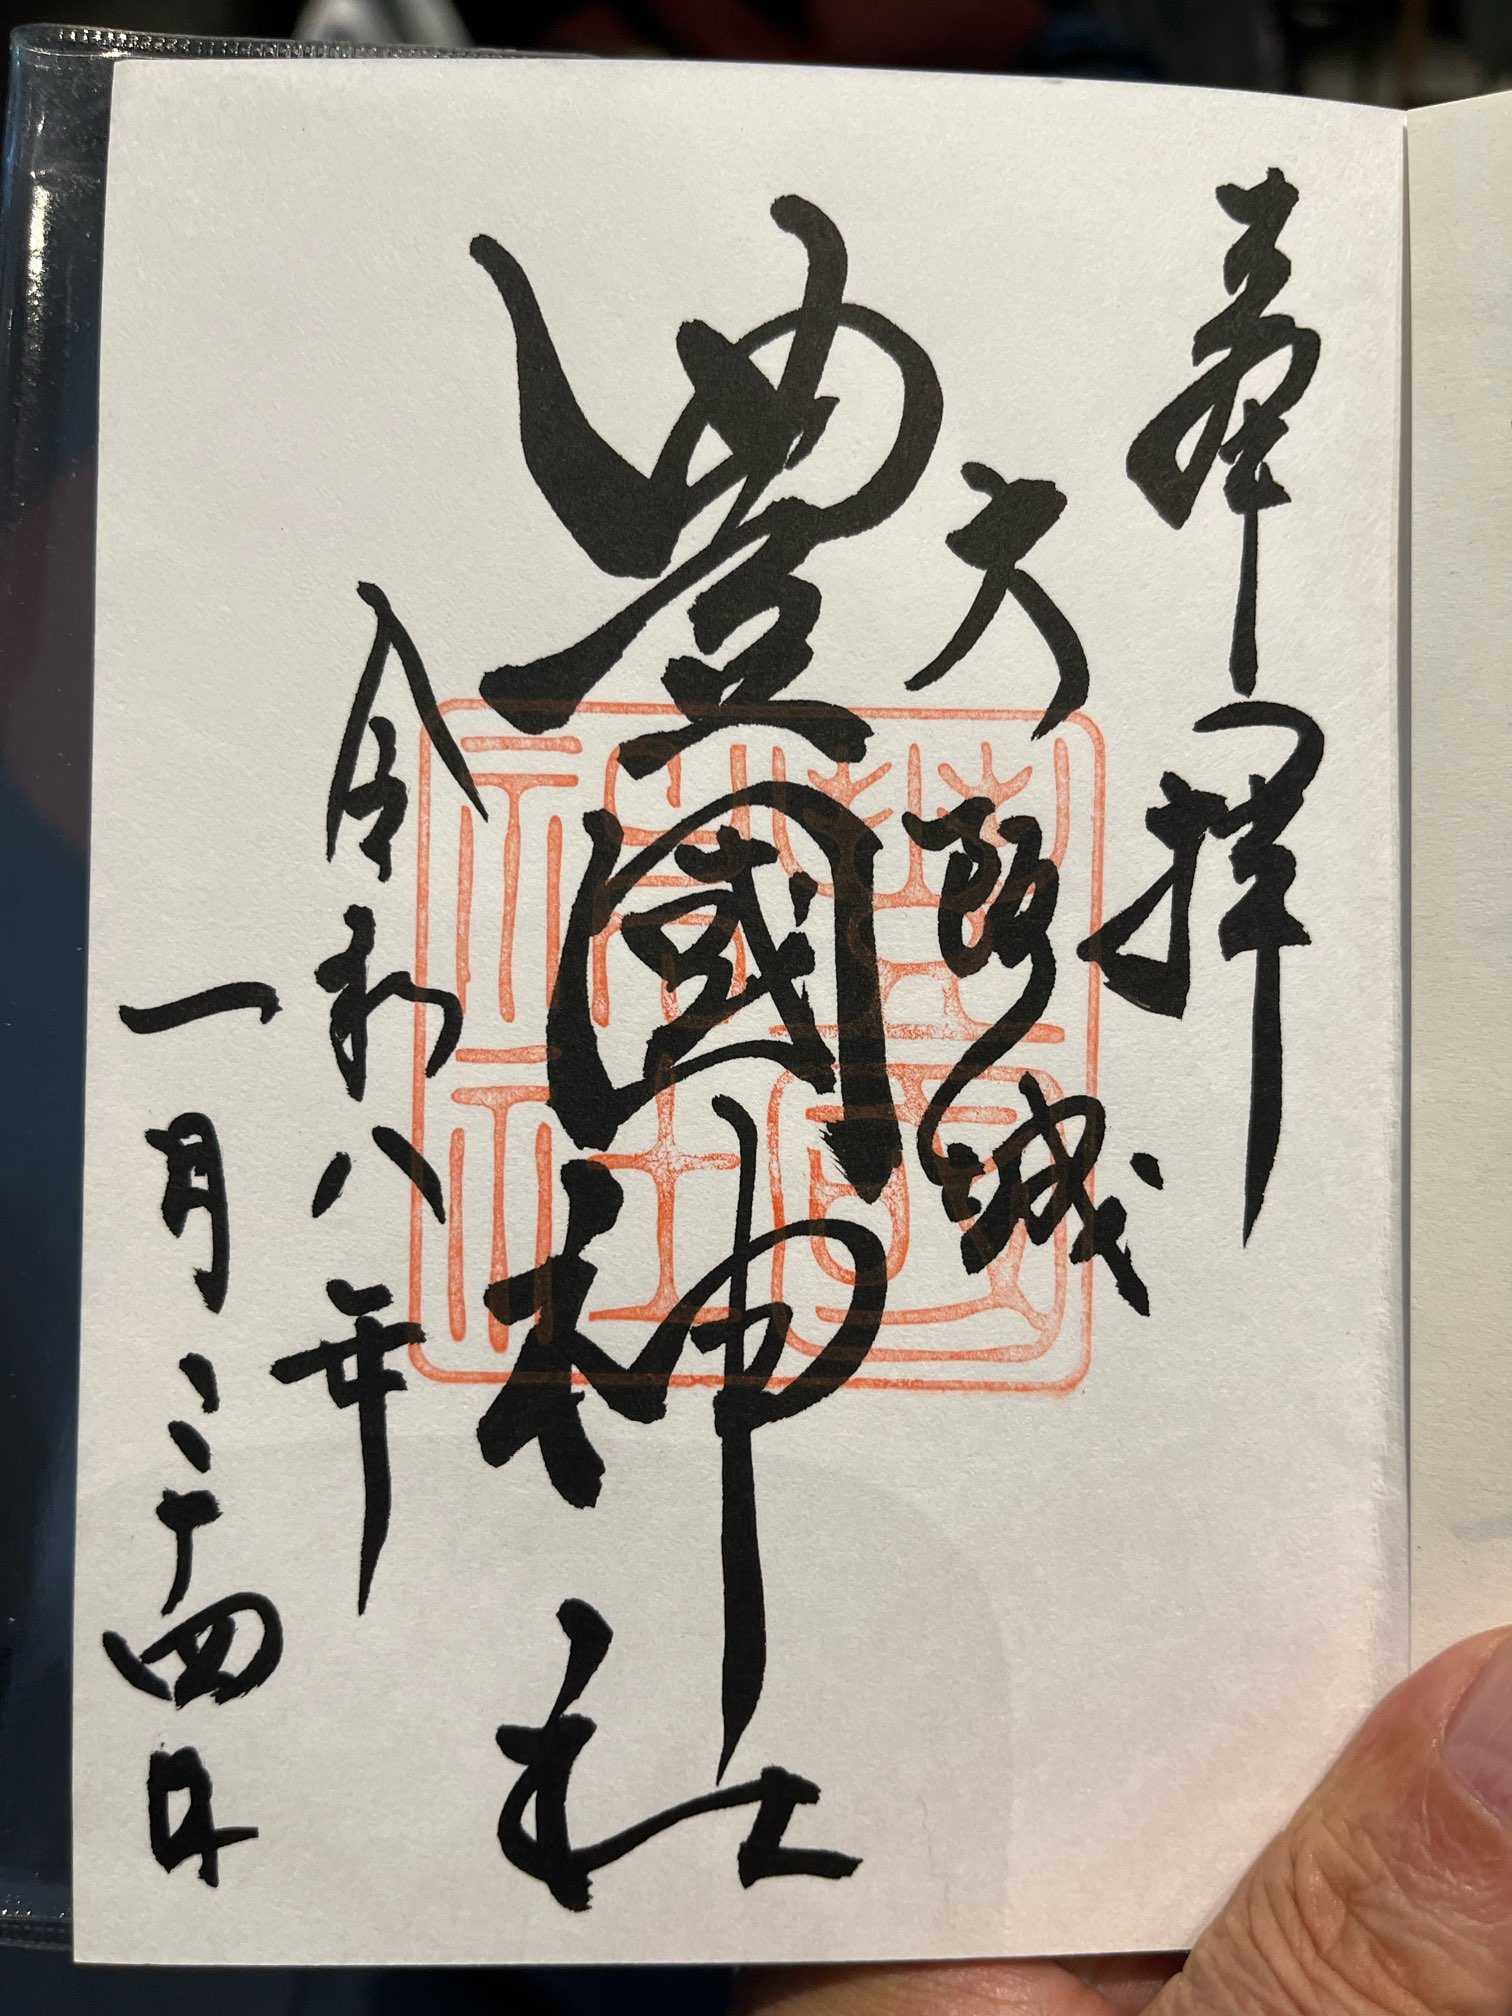 奉拝
大阪城
豊國神社
令和八年
一月二十四日